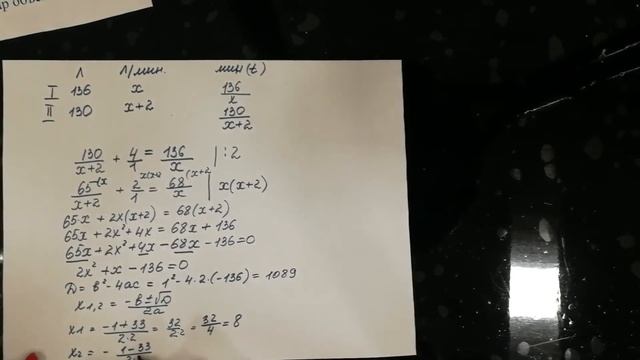 л л/мин. мин(t)
I 136 x 136/x
II 130 x+2 130/(x+2)
130/(x+2) + 4/1 = 136/x |:2
65^(x/(x+2) + 2/1^x(x+2) = 68^(x+2/x | x(x+2)
65x + 2x(x+2) = 68(x+2)
65x + 2x² + 4x = 68x + 136
65x + 2x² + 4x - 68x - 136 = 0
2x² + x - 136 = 0
D = b² - 4ac = 1² - 4·2·(-136) = 1089
x1,2 = (-b ± √D)/2a
x1 = (-1+33)/(2·2) = 32/(2·2) = 32/4 = 8
x2 = - (1-33)/